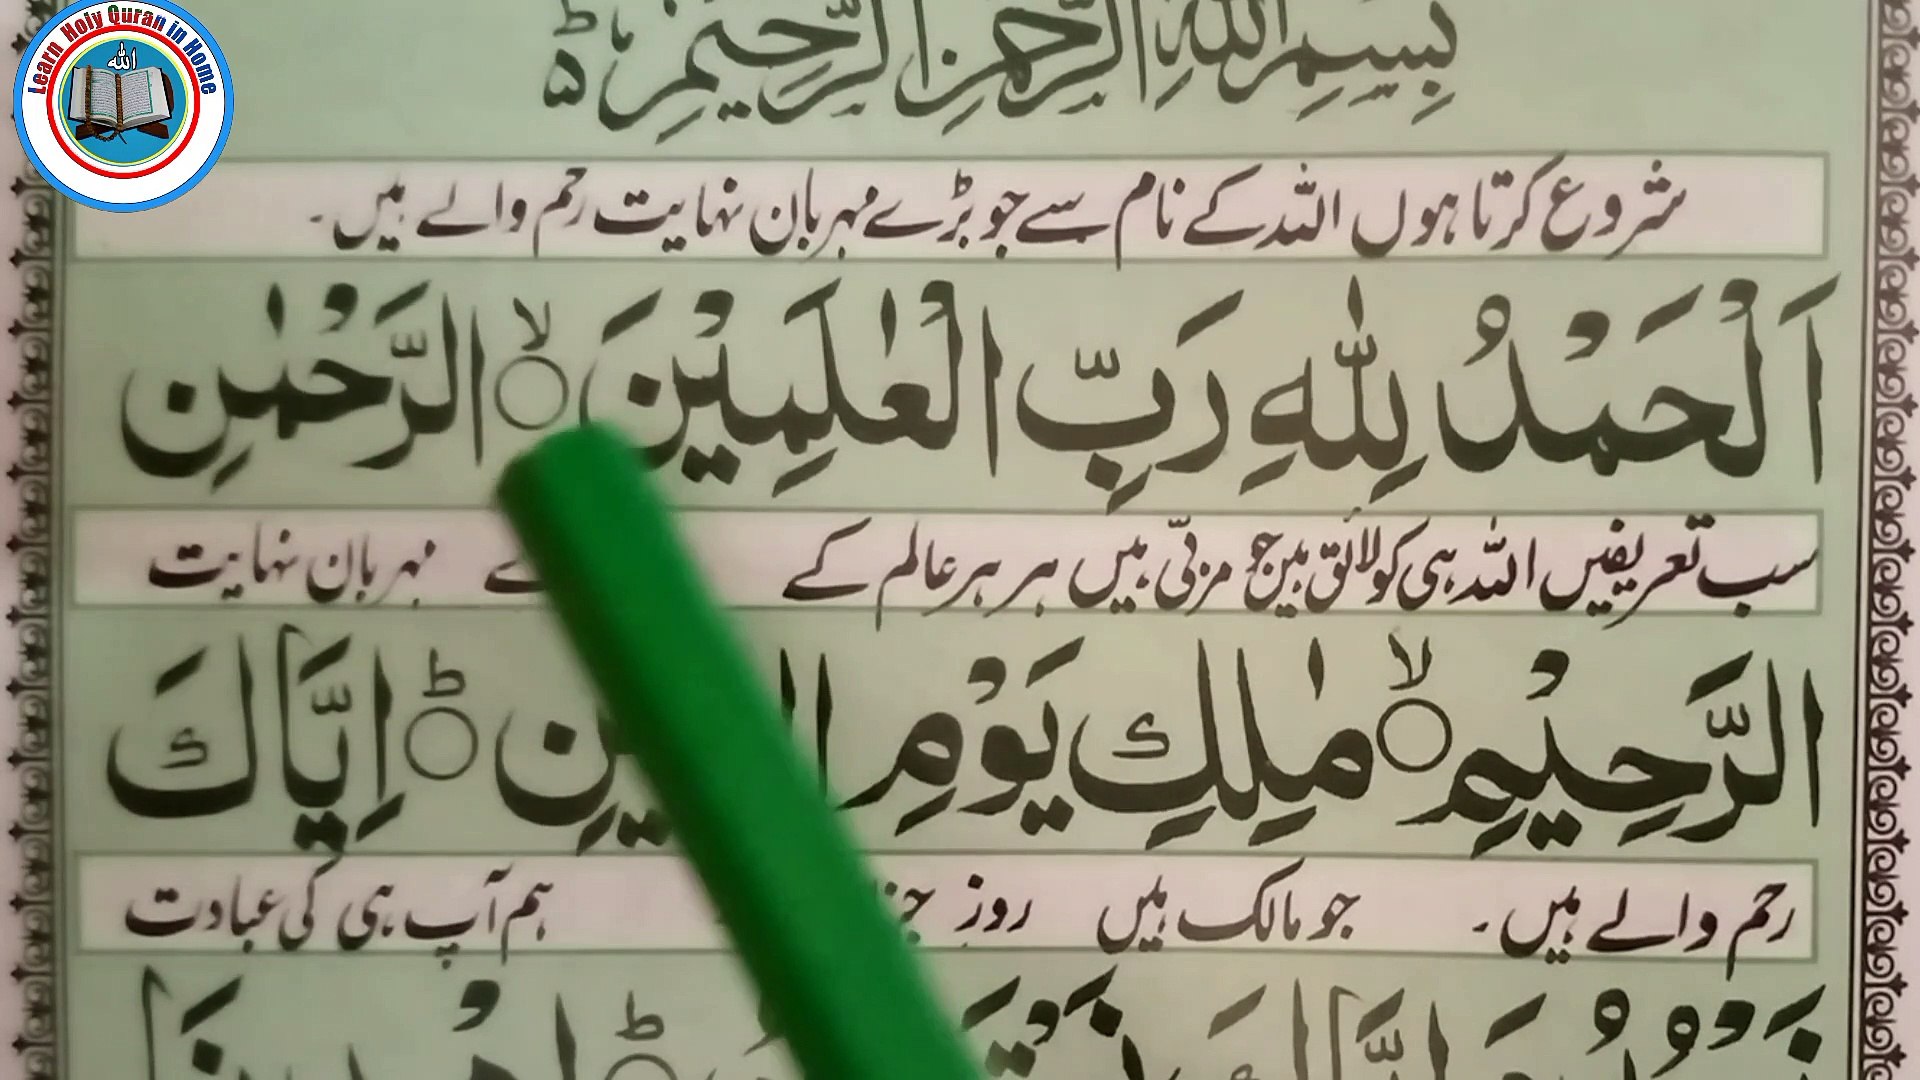 Learn Holy Quran in Home
الله
بِسْمِ اللهِ الرَّحْمٰنِ الرَّحِيْمِ ط
شروع کرتا ہوں اللہ کے نام سے جو بڑے مہربان نہایت رحم والے ہیں۔
اَلْحَمْدُ لِلّٰهِ رَبِّ الْعٰلَمِيْنَ ۙ الرَّحْمٰنِ
سب تعریفیں اللہ ہی کو لائق ہیں جو مربّی ہیں ہر ہر عالم کے مہربان نہایت
الرَّحِيْمِ ۙ مٰلِكِ يَوْمِ ۭ اِيَّاكَ
رحم والے ہیں۔ جو مالک ہیں روزِ ہم آپ ہی کی عبادت